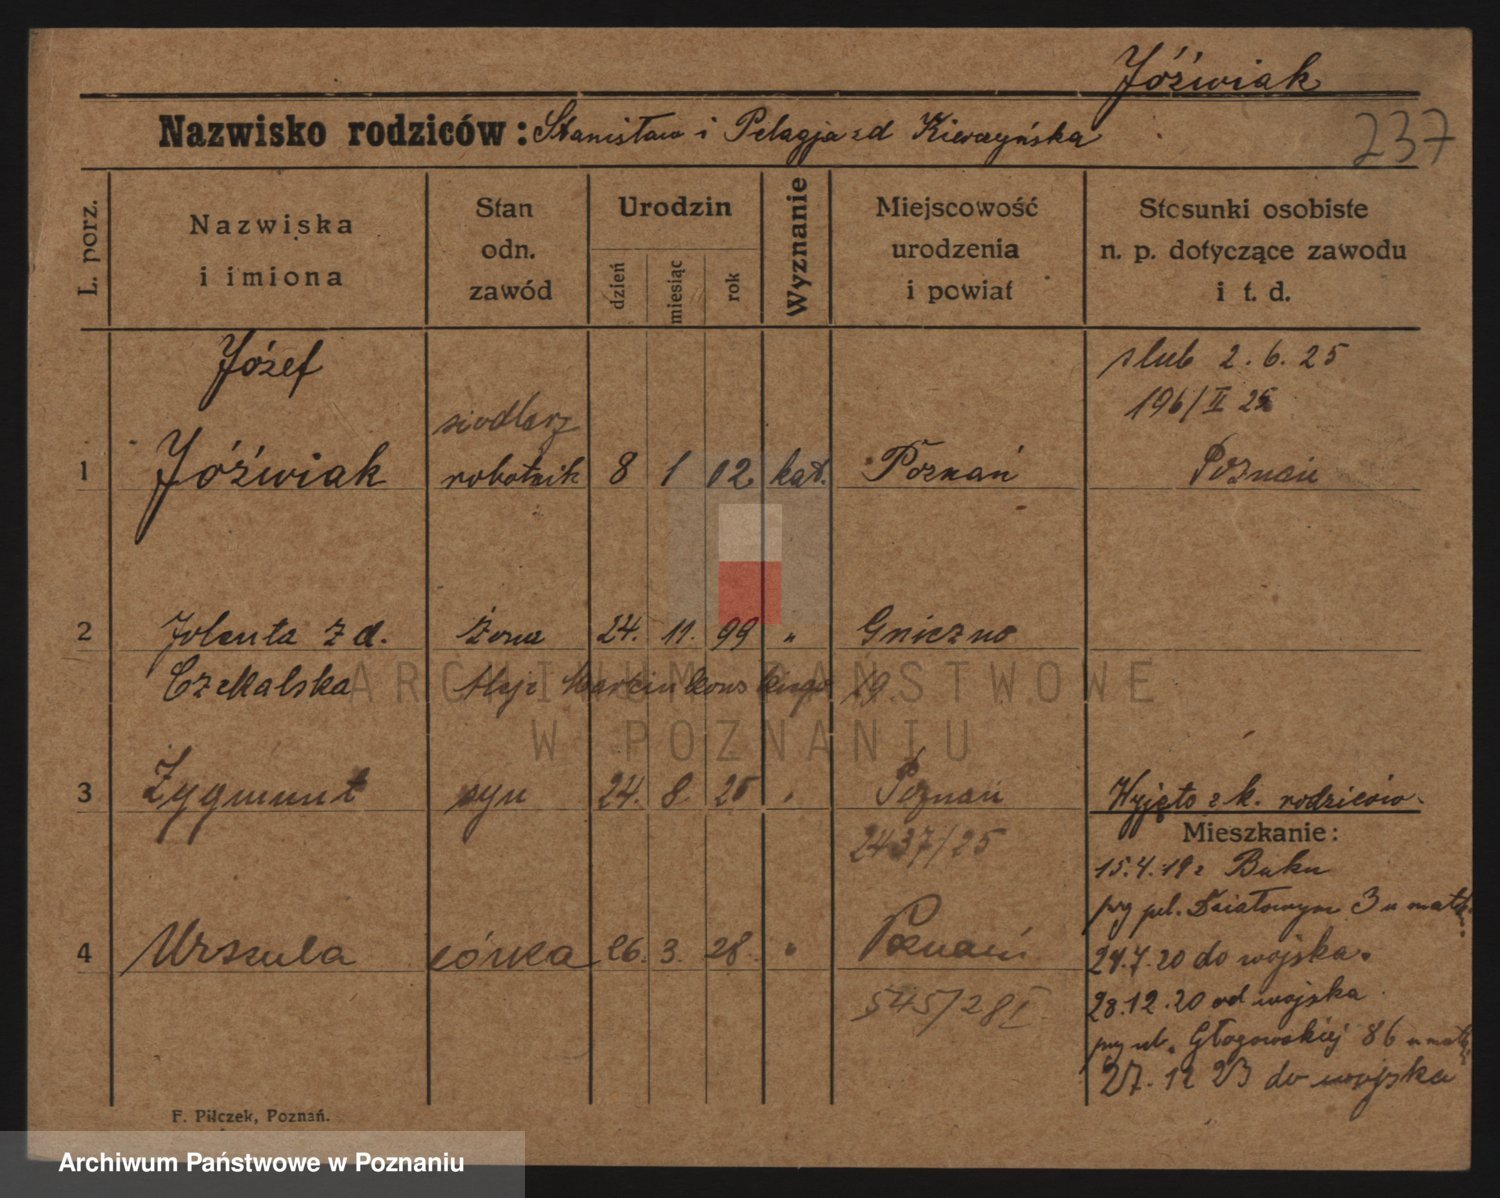 Jóźwiak
Nazwisko rodziców: Stanisław i Pelagja zd
237
L. porz.
Nazwiska
i imiona
Stan
odn.
zawód
Urodzin
dzień
miesiąc
rok
Wyznanie
Miejscowość
urodzenia
i powiat
Stosunki osobiste
n. p. dotyczące zawodu
i t. d.
Józef
ślub 2. 6. 25
196/II 25
siodlarz
1 Jóźwiak robotnik 8 1 02 kat. Poznań Poznań
2 Jolenta z d. żona 24. 11. 99 " Gniezno
Czekalska Aleje Marcinkowskiego 19.
3 Zygmunt syn 24. 8. 25 " Poznań Wyjęto z k. rodziców.
2437/25
Mieszkanie:
15.4.19 z Buku
przy pl. Działowym 3 u matki
4 Urszula córka 26. 3. 28. " Poznań
24.7.20 do wojska.
545/28 I
28.12.20 od wojska
przy ul. Głogowskiej 86 u matki
27. 12 23 do wojska
F. Pilczek, Poznań.
ARCHIWUM PAŃSTWOWE
W POZNANIU
Archiwum Państwowe w Poznaniu